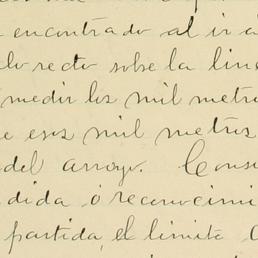 encontrado al ir a
recto sobre la line
medir los mil metro
e esos mil metros
del arroyo. Cons
dida ó reconocimi
partida, el limite